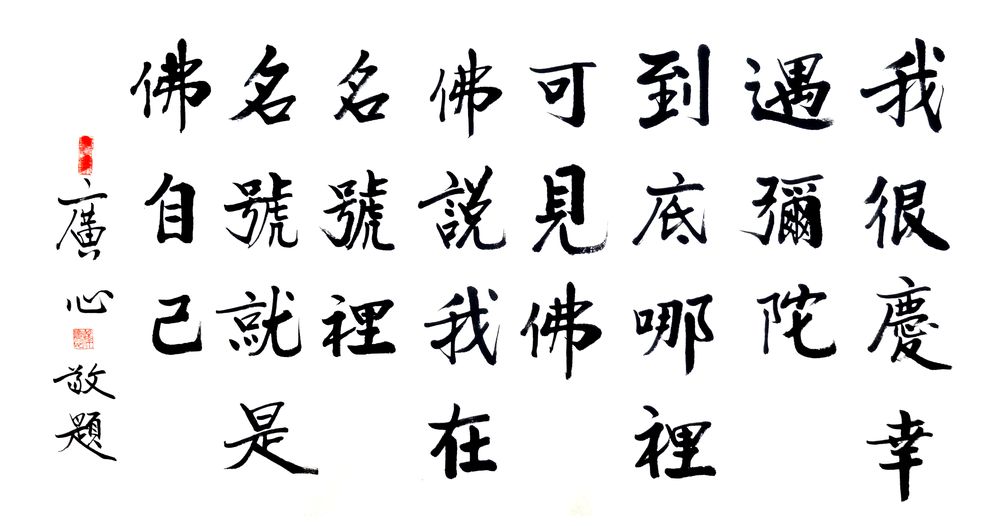 我很慶幸
遇彌陀
到底哪裡
可見佛
佛說我在
名號裡
名號就是
佛自己
廣心敬題